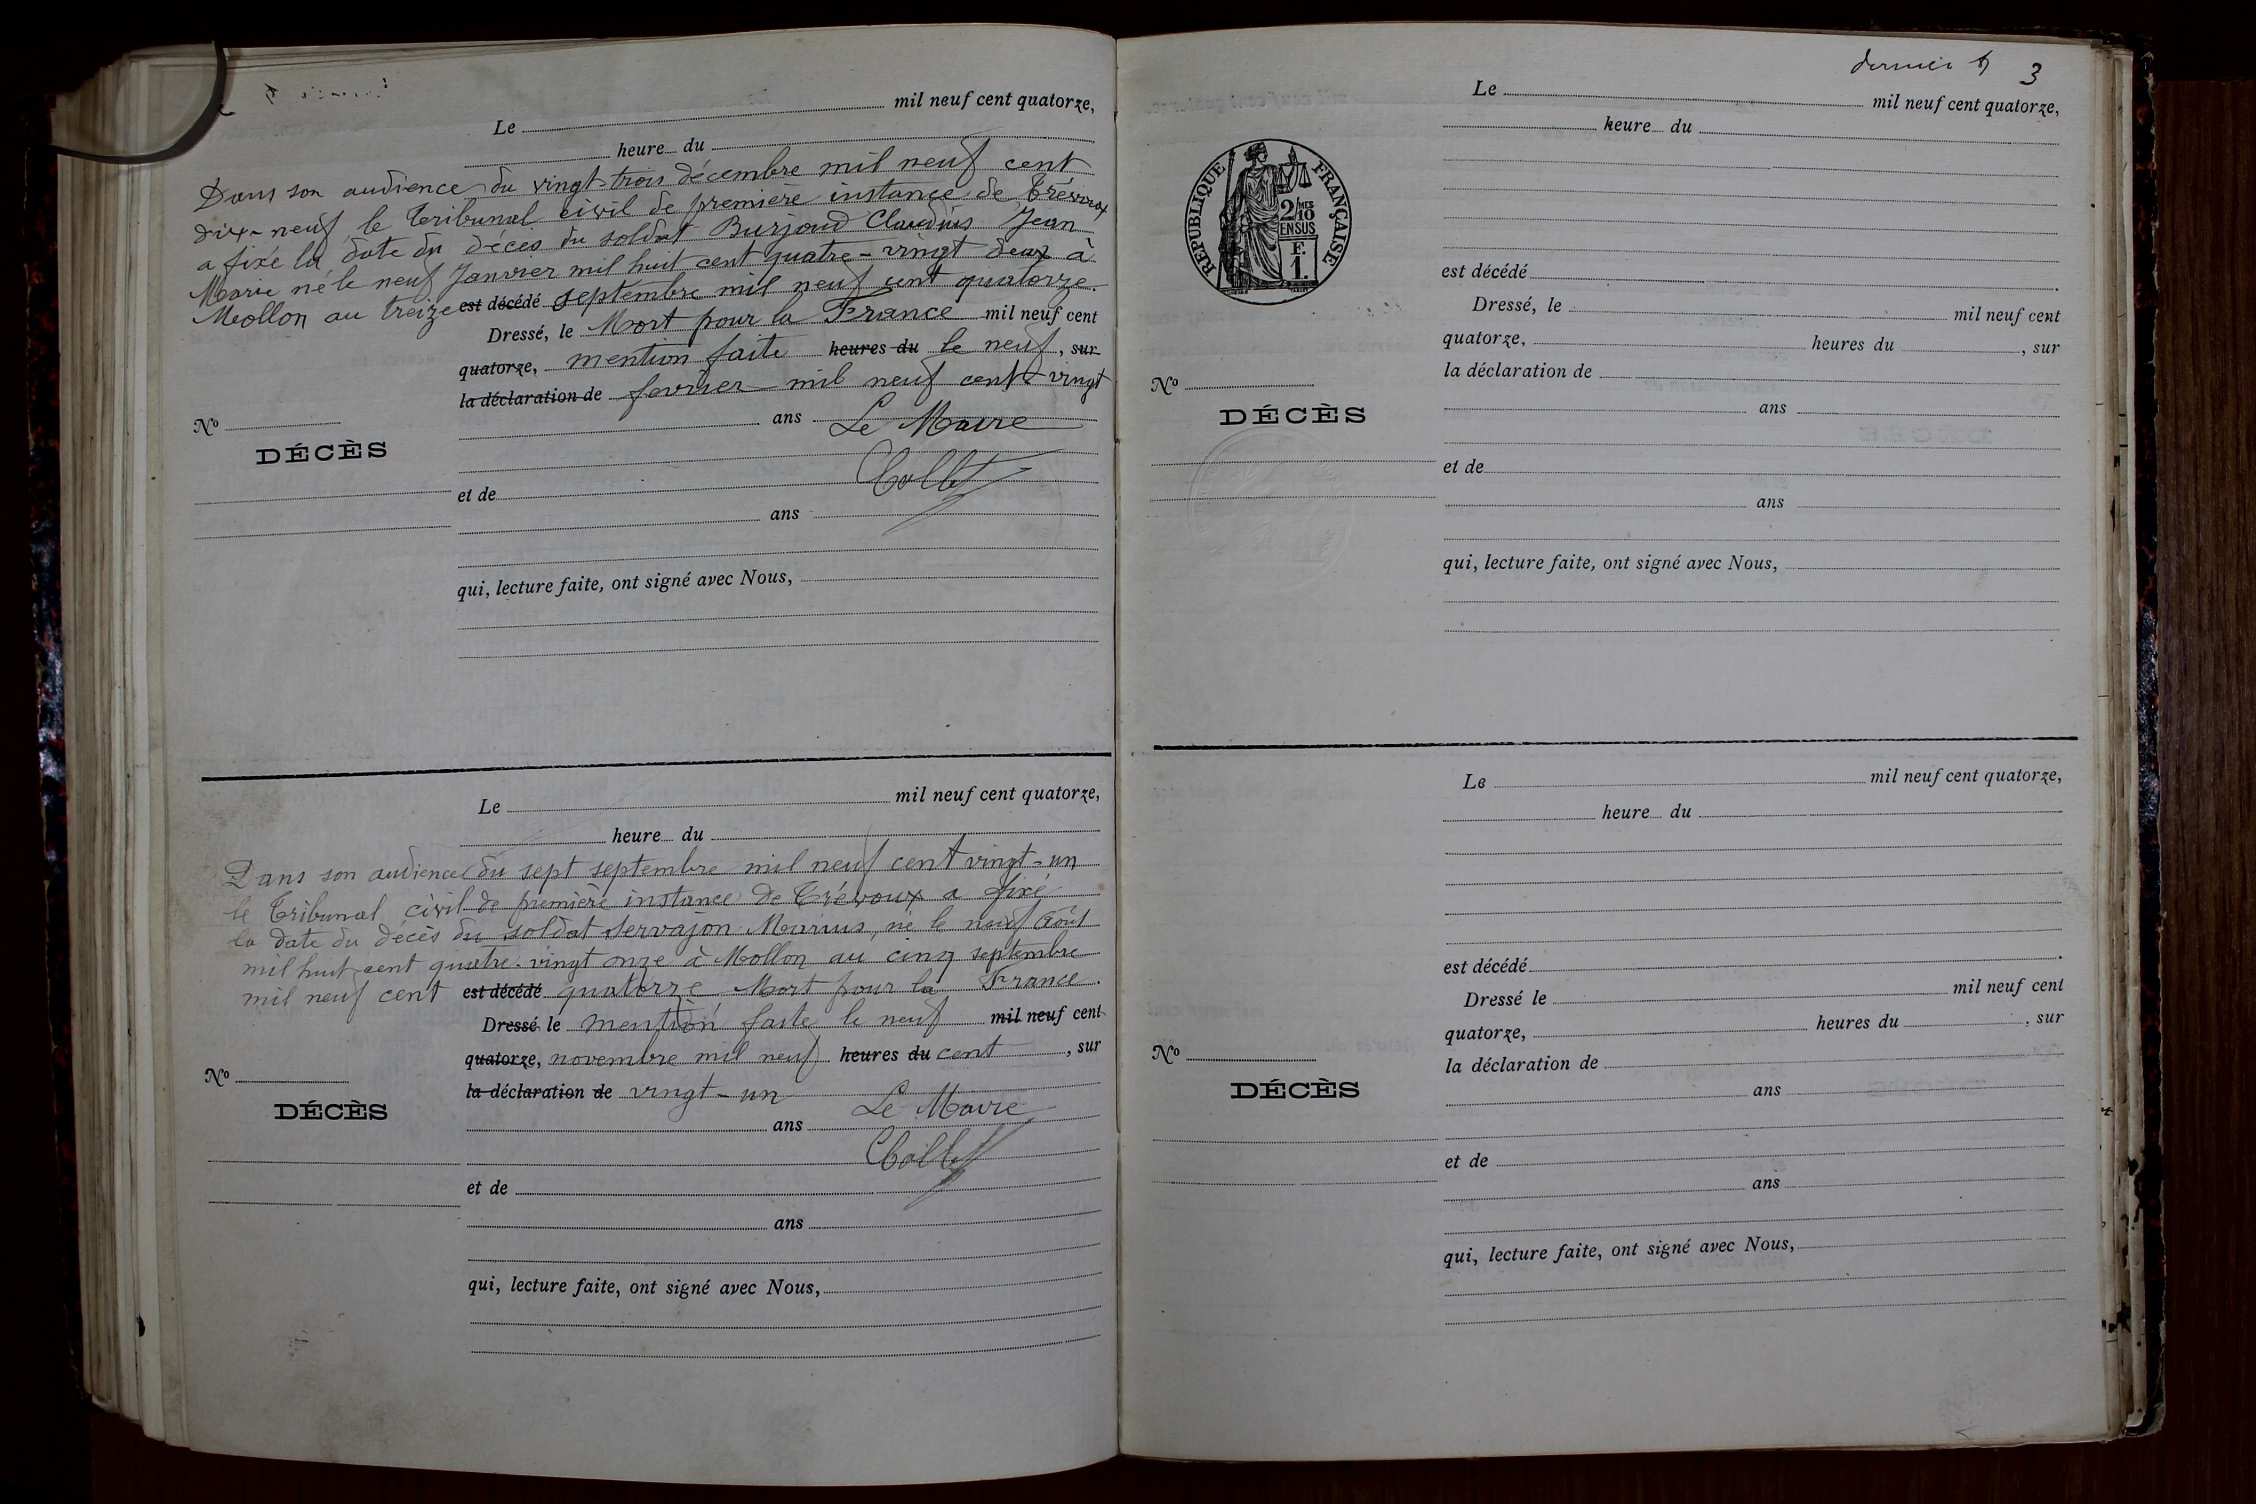 Le mil neuf cent quatorze,
heure du
Dans son audience du vingt-trois décembre mil neuf cent
dix-neuf le Tribunal civil de première instance de Trévoux
a fixé la date du décès du soldat Burjoud Claudius Jean
Marie né le neuf Janvier mil huit cent quatre-vingt deux à
Mollon au treize est décédé septembre mil neuf cent quatorze.
Dressé, le Mort pour la France mil neuf cent
quatorze, mention faite heures du le neuf, sur
la déclaration de fevrier mil neuf cent vingt
ans Le Maire
Nº
DÉCÈS
et de
ans
qui, lecture faite, ont signé avec Nous,
Le mil neuf cent quatorze,
heure du
Dans son audience du sept septembre mil neuf cent vingt-un
le Tribunal civil de première instance de Trévoux a fixé
la date du décès du soldat Servajon Marius, né le neuf Août
mil huit cent quatre-vingt onze à Mollon au cinq septembre
mil neuf cent est décédé quatorze Mort pour la France.
Dressé le mention faite le neuf mil neuf cent
quatorze, novembre mil neuf heures du cent, sur
la déclaration de vingt-un
Nº
DÉCÈS
ans Le Maire
et de
ans
qui, lecture faite, ont signé avec Nous,
dernier 3
Le mil neuf cent quatorze,
heure du
RÉPUBLIQUE FRANÇAISE
2/10 MES
EN SUS
F.
1.
est décédé
Dressé, le mil neuf cent
quatorze, heures du, sur
la déclaration de
Nº
DÉCÈS
ans
et de
ans
qui, lecture faite, ont signé avec Nous,
Le mil neuf cent quatorze,
heure du
est décédé
Dressé le mil neuf cent
quatorze, heures du, sur
la déclaration de
Nº
DÉCÈS
ans
et de
ans
qui, lecture faite, ont signé avec Nous,